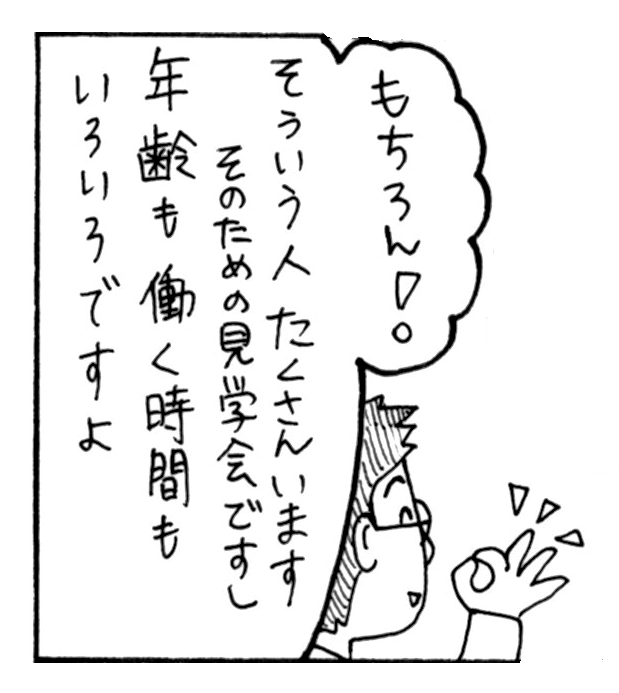 もちろん！
そういう人 たくさんいます
そのための見学会ですし
年齢も働く時間も
いろいろですよ